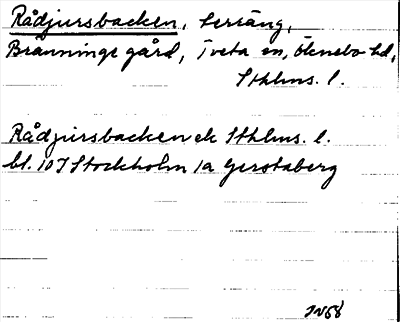 Rådjursbacken, terräng,
Bränninge gård, Tveta sn, Öknebo hd,
Sthlms. l.
Rådjursbacken ek Sthlms. l.
bl. 10I Stockholm 1a Gerstaberg